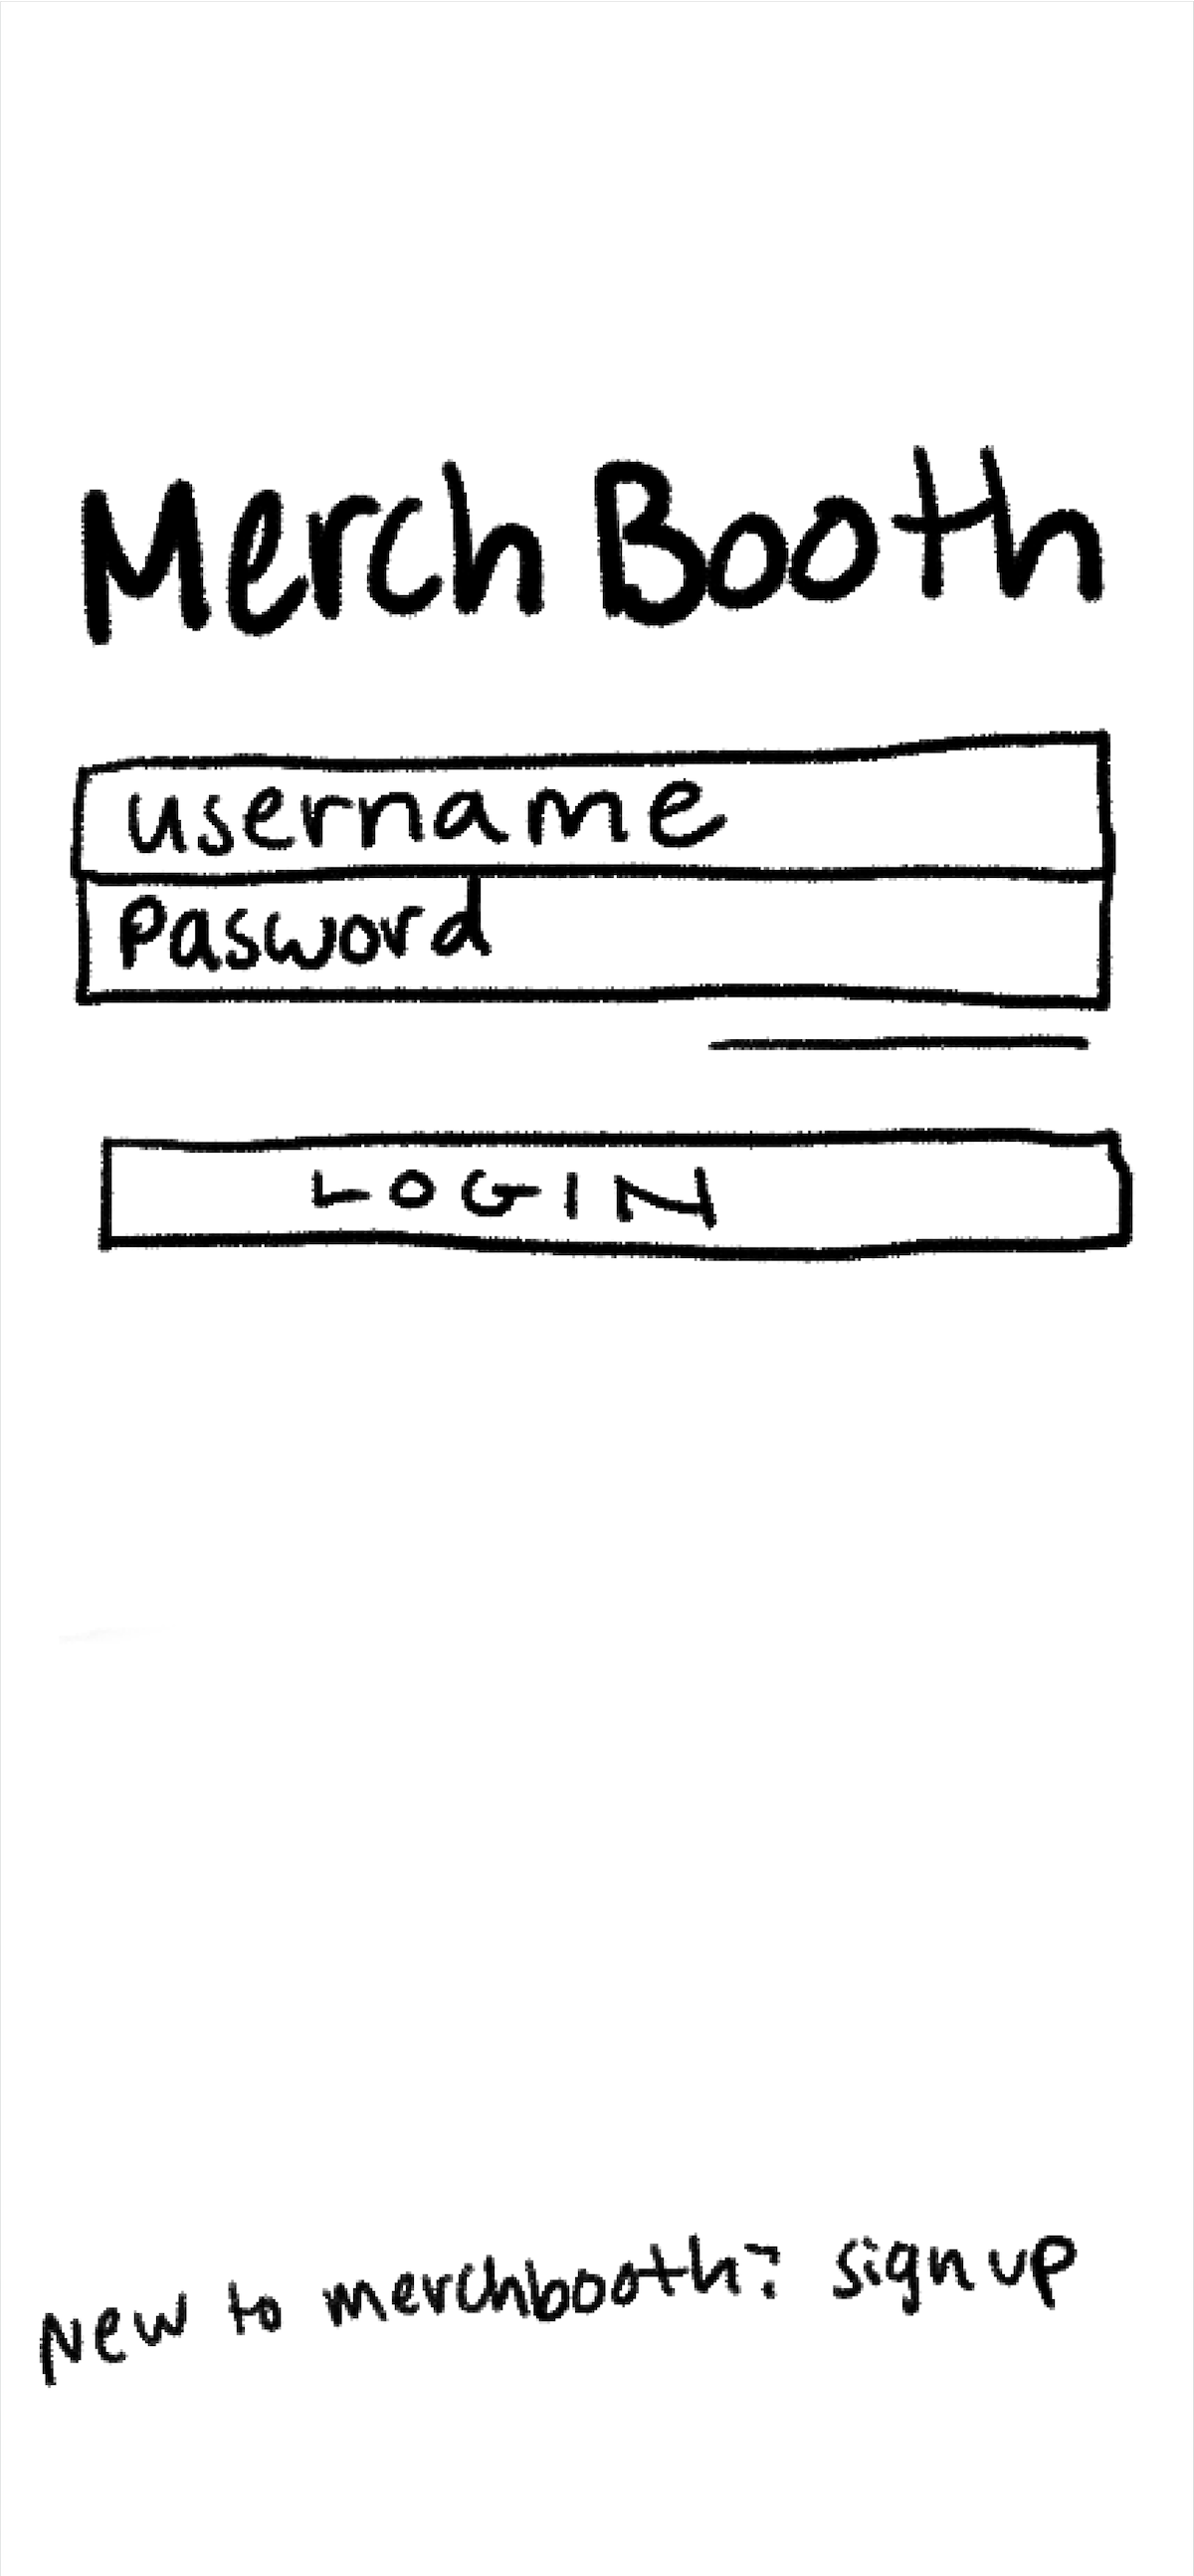 Merch Booth
username
Pasword
LOGIN
New to merchbooth? sign up